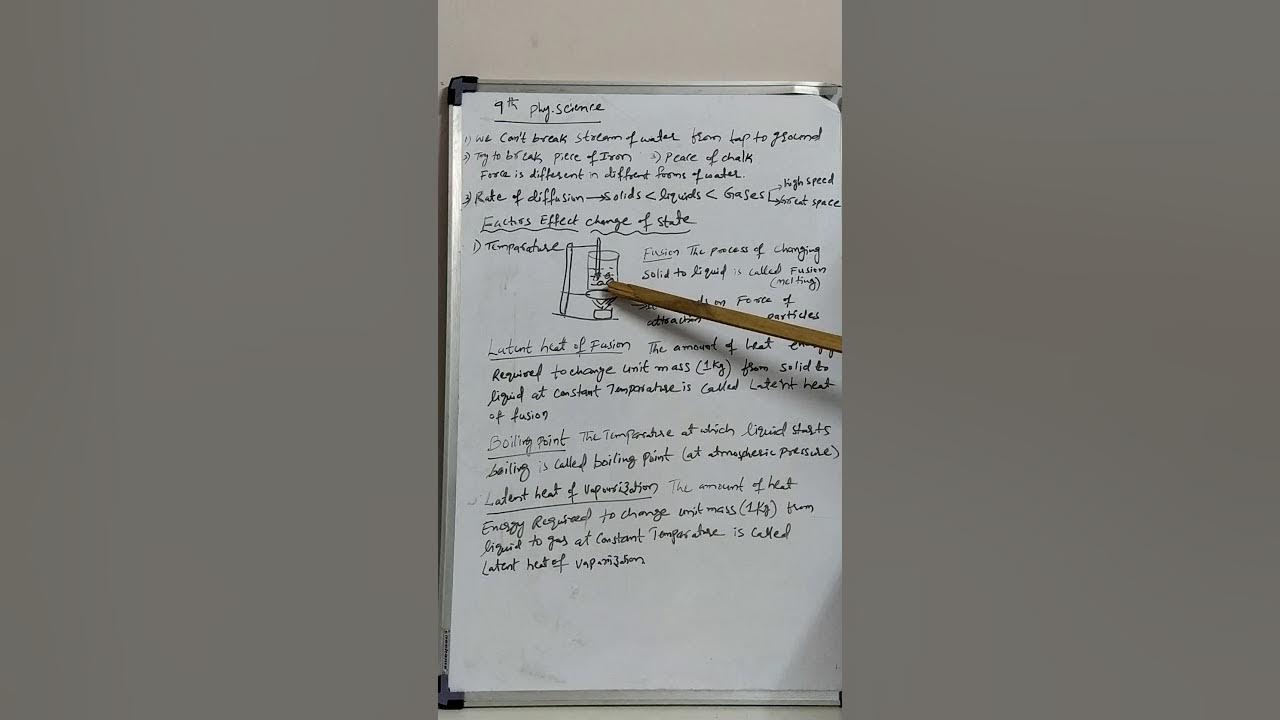 9th phy.science
1) We Can't break stream of water from tap to ground
2) Try to break piece of Iron 3) Peace of chalk
Force is different in diffrent forms of water.
3) Rate of diffusion → solids < liquids < Gases → high speed
→ Great space
Factors Effect change of state
1) Temparature
Fusion The process of changing
solid to liquid is called Fusion
(melting)
on Force of
attraction particles
Latent heat of Fusion The amount of heat energy
Required to change unit mass (1kg) from solid to
liquid at constant Temparature is called Latent heat
of fusion
Boiling point The Temparature at which liquid starts
boiling is called boiling point (at atmospheric pressure)
Latent heat of vapourization The amount of heat
Energy Required to change unit mass (1kg) from
liquid to gas at constant Temparature is called
Latent heat of vaparization